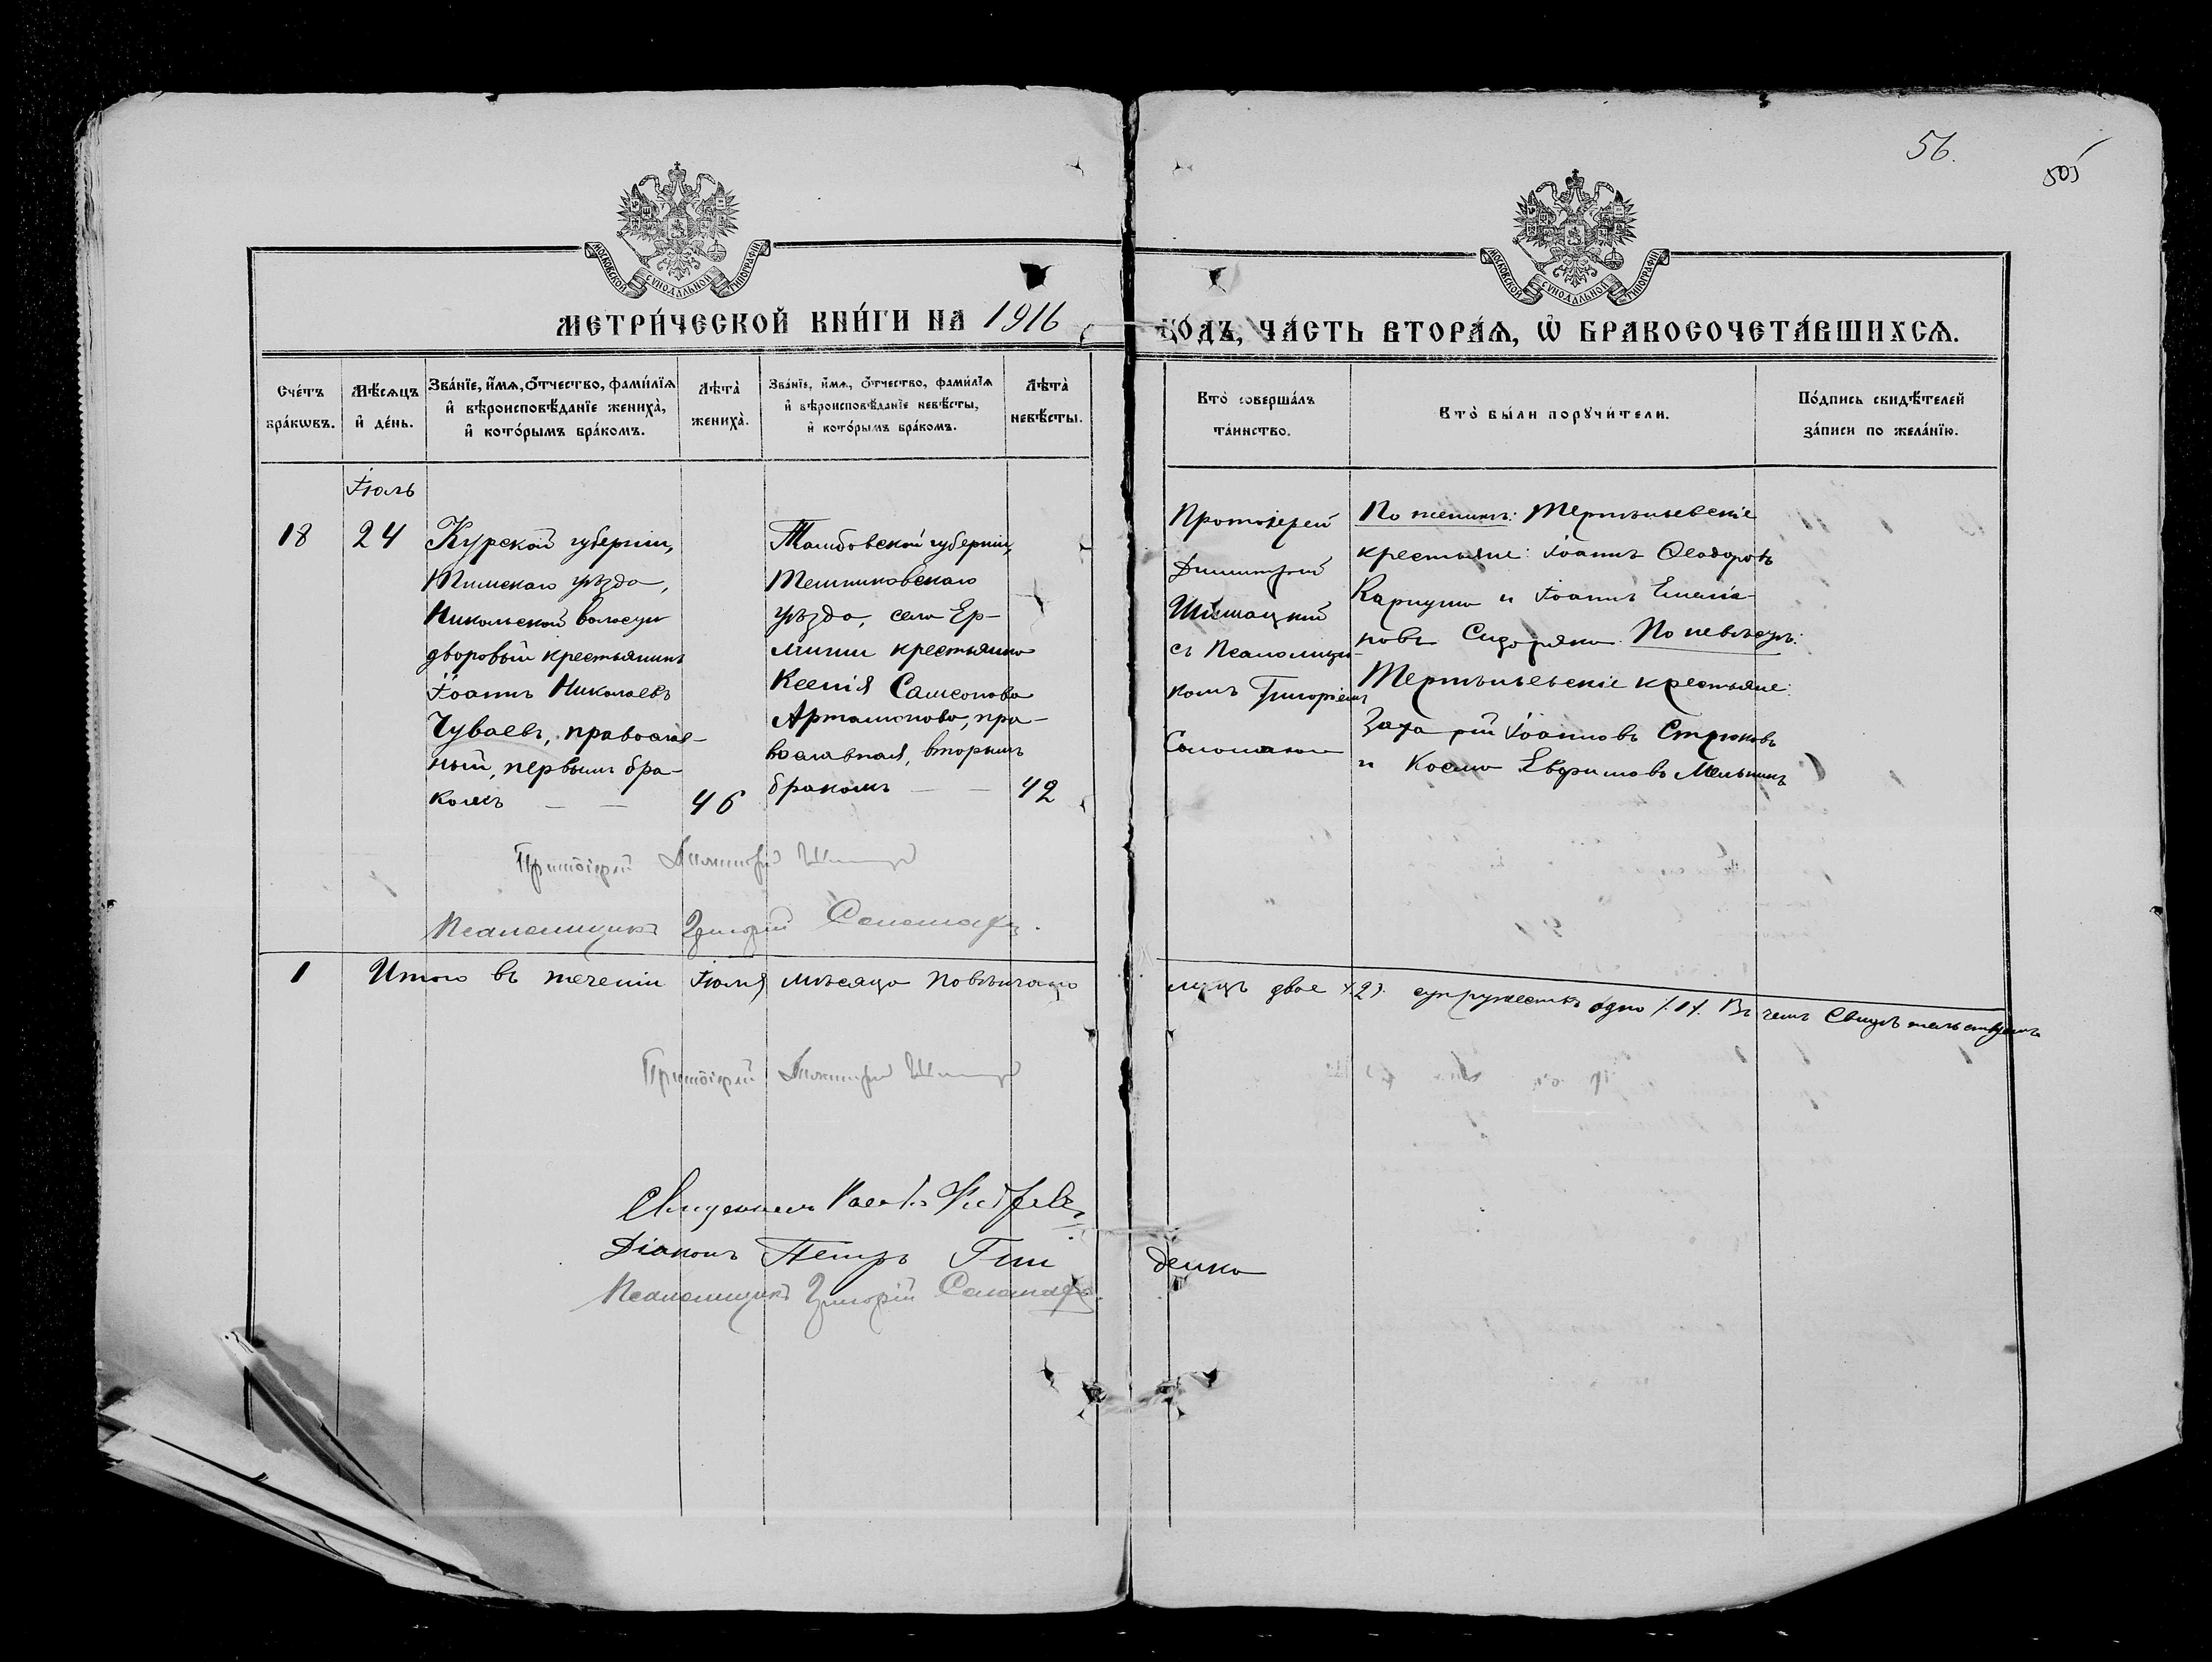 56.
505
МОСКОВСКОЙ СУНОДАЛЬНОЙ ТИПОГРАФІИ
МОСКОВСКОЙ СУНОДАЛЬНОЙ ТИПОГРАФІИ
МЕТРИ́ЧЕСКОЙ КНИ́ГИ НА 1916
ГО́ДЪ, ЧА́СТЬ ВТОРА́Ѧ, Ѽ БРАКОСОЧЕТА́ВШИХСѦ.
Сче́тъ
бра́кѡвъ.
Мѣ́сѧцъ
и҆ де́нь.
Зва́нїе, и҆́мѧ, ѻ҆́тчество, фами́лїѧ
и҆ вѣроисповѣ́данїе жениха̀,
и҆ кото́рымъ бра́комъ.
Лѣта̀
жениха̀.
Зва́нїе, и҆́мѧ, ѻ҆́тчество, фами́лїѧ
и҆ вѣроисповѣ́данїе невѣ́сты,
и҆ кото́рымъ бра́комъ.
Лѣта̀
невѣ́сты.
Кто̀ соверша́лъ
та́инство.
Кто̀ бы́ли порꙋчи́тели.
По́дпись свидѣ́телей
за́писи по жела́нїю.
Іюль
18
24
Курской губерніи,
Тимскаго уѣзда,
Никольской волости
дворовый крестьянинъ
Іоаннъ Николаевъ
Чуваевъ, православ-
ный, первымъ бра-
комъ — —
46
Тамбовской губерніи,
Темниковскаго
уѣзда, села Ер-
миши крестьянка
Ксенія Самсонова
Артамонова, пра-
вославная, вторымъ
бракомъ — —
42
Протоіерей
Димитрій
Шишацкій
съ Псаломщи-
комъ Григоріемъ
По женихѣ:
крестьяне: Іоаннъ Ѳеодоровъ
и Іоаннъ Емелiа-
новъ По невѣстѣ:
крестьяне:
Захарій Іоанновъ Стрюковъ
и Косма Мельникъ
Протоіерей Димитрій
Псаломщикъ Григорій
1
Итого въ теченіи Іюля мѣсяца повѣнчано
лицъ двое /.2/. супружествъ одно /.1/. Въ чемъ свидѣтельствуемъ
Протоіерей Димитрій
Священникъ
Діаконъ Петръ
денко
Псаломщикъ Григорій